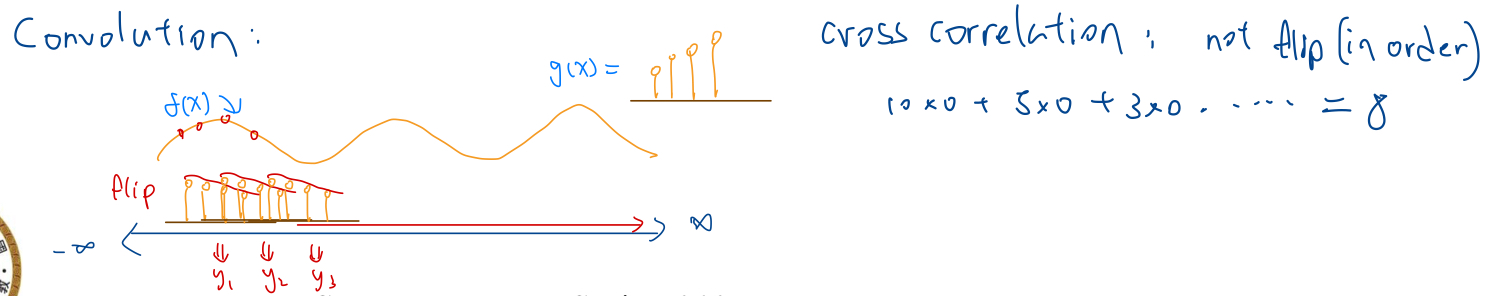 Convolution:
g(x) =
f(x)
flip
-∞
∞
y₁ y₂ y₃
cross correlation: not flip (in order)
10×0 + 5×0 + 3×0 . .... = 8